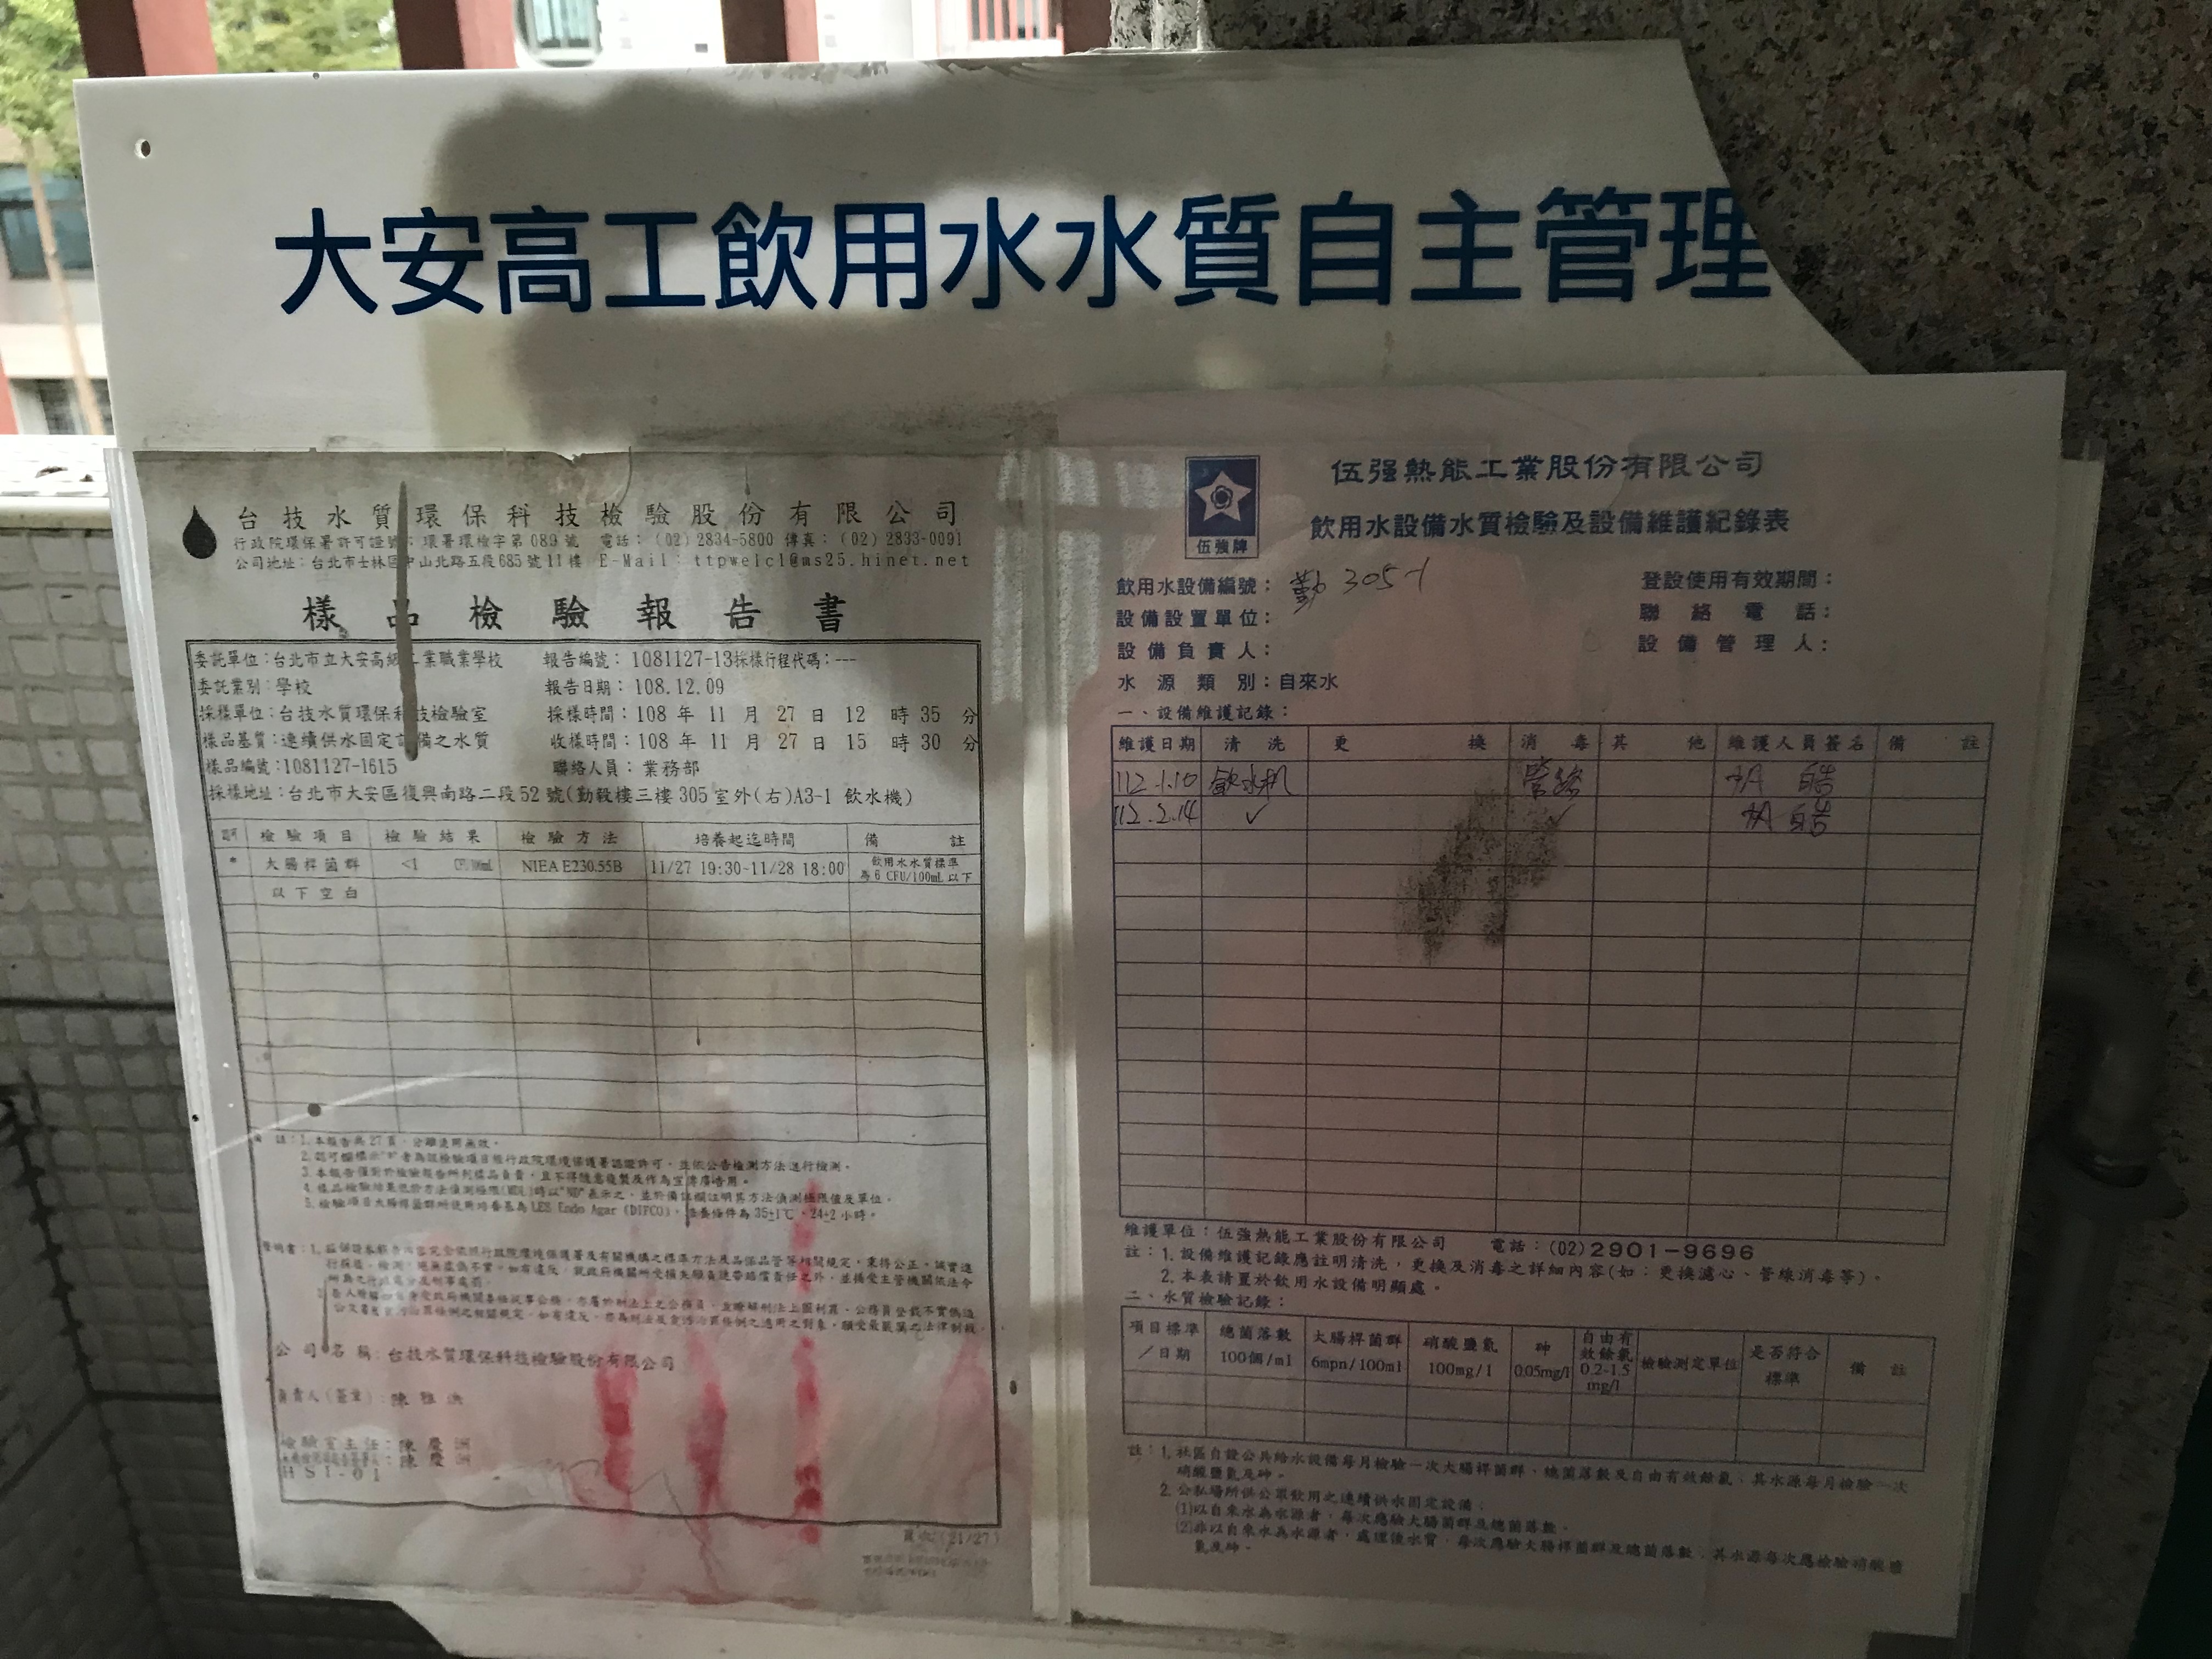 大安高工飲用水水質自主管理
台技水質環保科技檢驗股份有限公司
行政院環保署許可證號：環署環檢字第089號 電話：(02)2834-5800 傳真：(02)2833-0091
公司地址：台北市士林區中山北路五段685號11樓 E-Mail：ttpwelcl@ms25.hinet.net
樣品檢驗報告書
委託單位：台北市立大安高級工業職業學校 報告編號：1081127-13採樣行程代碼：---
委託業別：學校 報告日期：108.12.09
採樣單位：台技水質環保科技檢驗室 採樣時間：108年11月27日12時35分
樣品基質：連續供水固定設備之水質 收樣時間：108年11月27日15時30分
樣品編號：1081127-1615 聯絡人員：業務部
採樣地址：台北市大安區復興南路二段52號(勤毅樓三樓305室外(右)A3-1 飲水機)
檢驗項目 檢驗結果 檢驗方法 培養起迄時間 備註
* 大腸桿菌群 <1 CFU/100mL NIEA E230.55B 11/27 19:30~11/28 18:00 飲用水水質標準
為6 CFU/100mL以下
以下空白
註：1.本報告共27頁，分離使用無效。
2.認可欄標示"*"者為該檢驗項目經行政院環境保護署認證許可，並依公告檢測方法進行檢測。
3.本報告僅對於檢驗報告所列樣品負責，且不得隨意複製及作為宣傳廣告用。
4.樣品檢驗結果低於方法偵測極限(MDL)時以"ND"表示之，並於備註欄註明其方法偵測極限值及單位。
5.檢驗項目大腸桿菌群所使用培養基為LES Endo Agar (DIFCO)，培養條件為35±1℃、24±2小時。
公司名稱：台技水質環保科技檢驗股份有限公司
負責人(簽章)：陳雅
檢驗室主任：陳慶
陳慶
HSI-01
頁次(21/27)
伍強牌
伍强熱能工業股份有限公司
飲用水設備水質檢驗及設備維護紀錄表
飲用水設備編號：勤305-1 登設使用有效期間：
設備設置單位： 聯絡電話：
設備負責人： 設備管理人：
水源類別：自來水
一、設備維護記錄：
維護日期 清洗 更換 消毒 其他 維護人員簽名 備註
112.1.10 飲水机 管線
112.2.14 ✓ ✓
維護單位：伍強熱能工業股份有限公司 電話：(02)2901-9696
註：1.設備維護記錄應註明清洗，更換及消毒之詳細內容(如：更換濾心、管線消毒等)。
2.本表請置於飲用水設備明顯處。
二、水質檢驗記錄：
項目標準／日期 總菌落數100個/ml 大腸桿菌群6mpn/100ml 硝酸鹽氮100mg/l 砷0.05mg/l 自由有效餘氯0.2-1.5mg/l 檢驗測定單位 是否符合標準 備註
註：1.社區自設公共給水設備每月檢驗一次大腸桿菌群、總菌落數及自由有效餘氯；其水源每月檢驗一次
硝酸鹽氮及砷。
2.公私場所供公眾飲用之連續供水固定設備：
(1)以自來水為水源者，每次應驗大腸菌群及總菌落數。
(2)非以自來水為水源者，處理後水質，每次應驗大腸桿菌群及總菌落數；其水源每次應檢驗硝酸鹽
氮及砷。